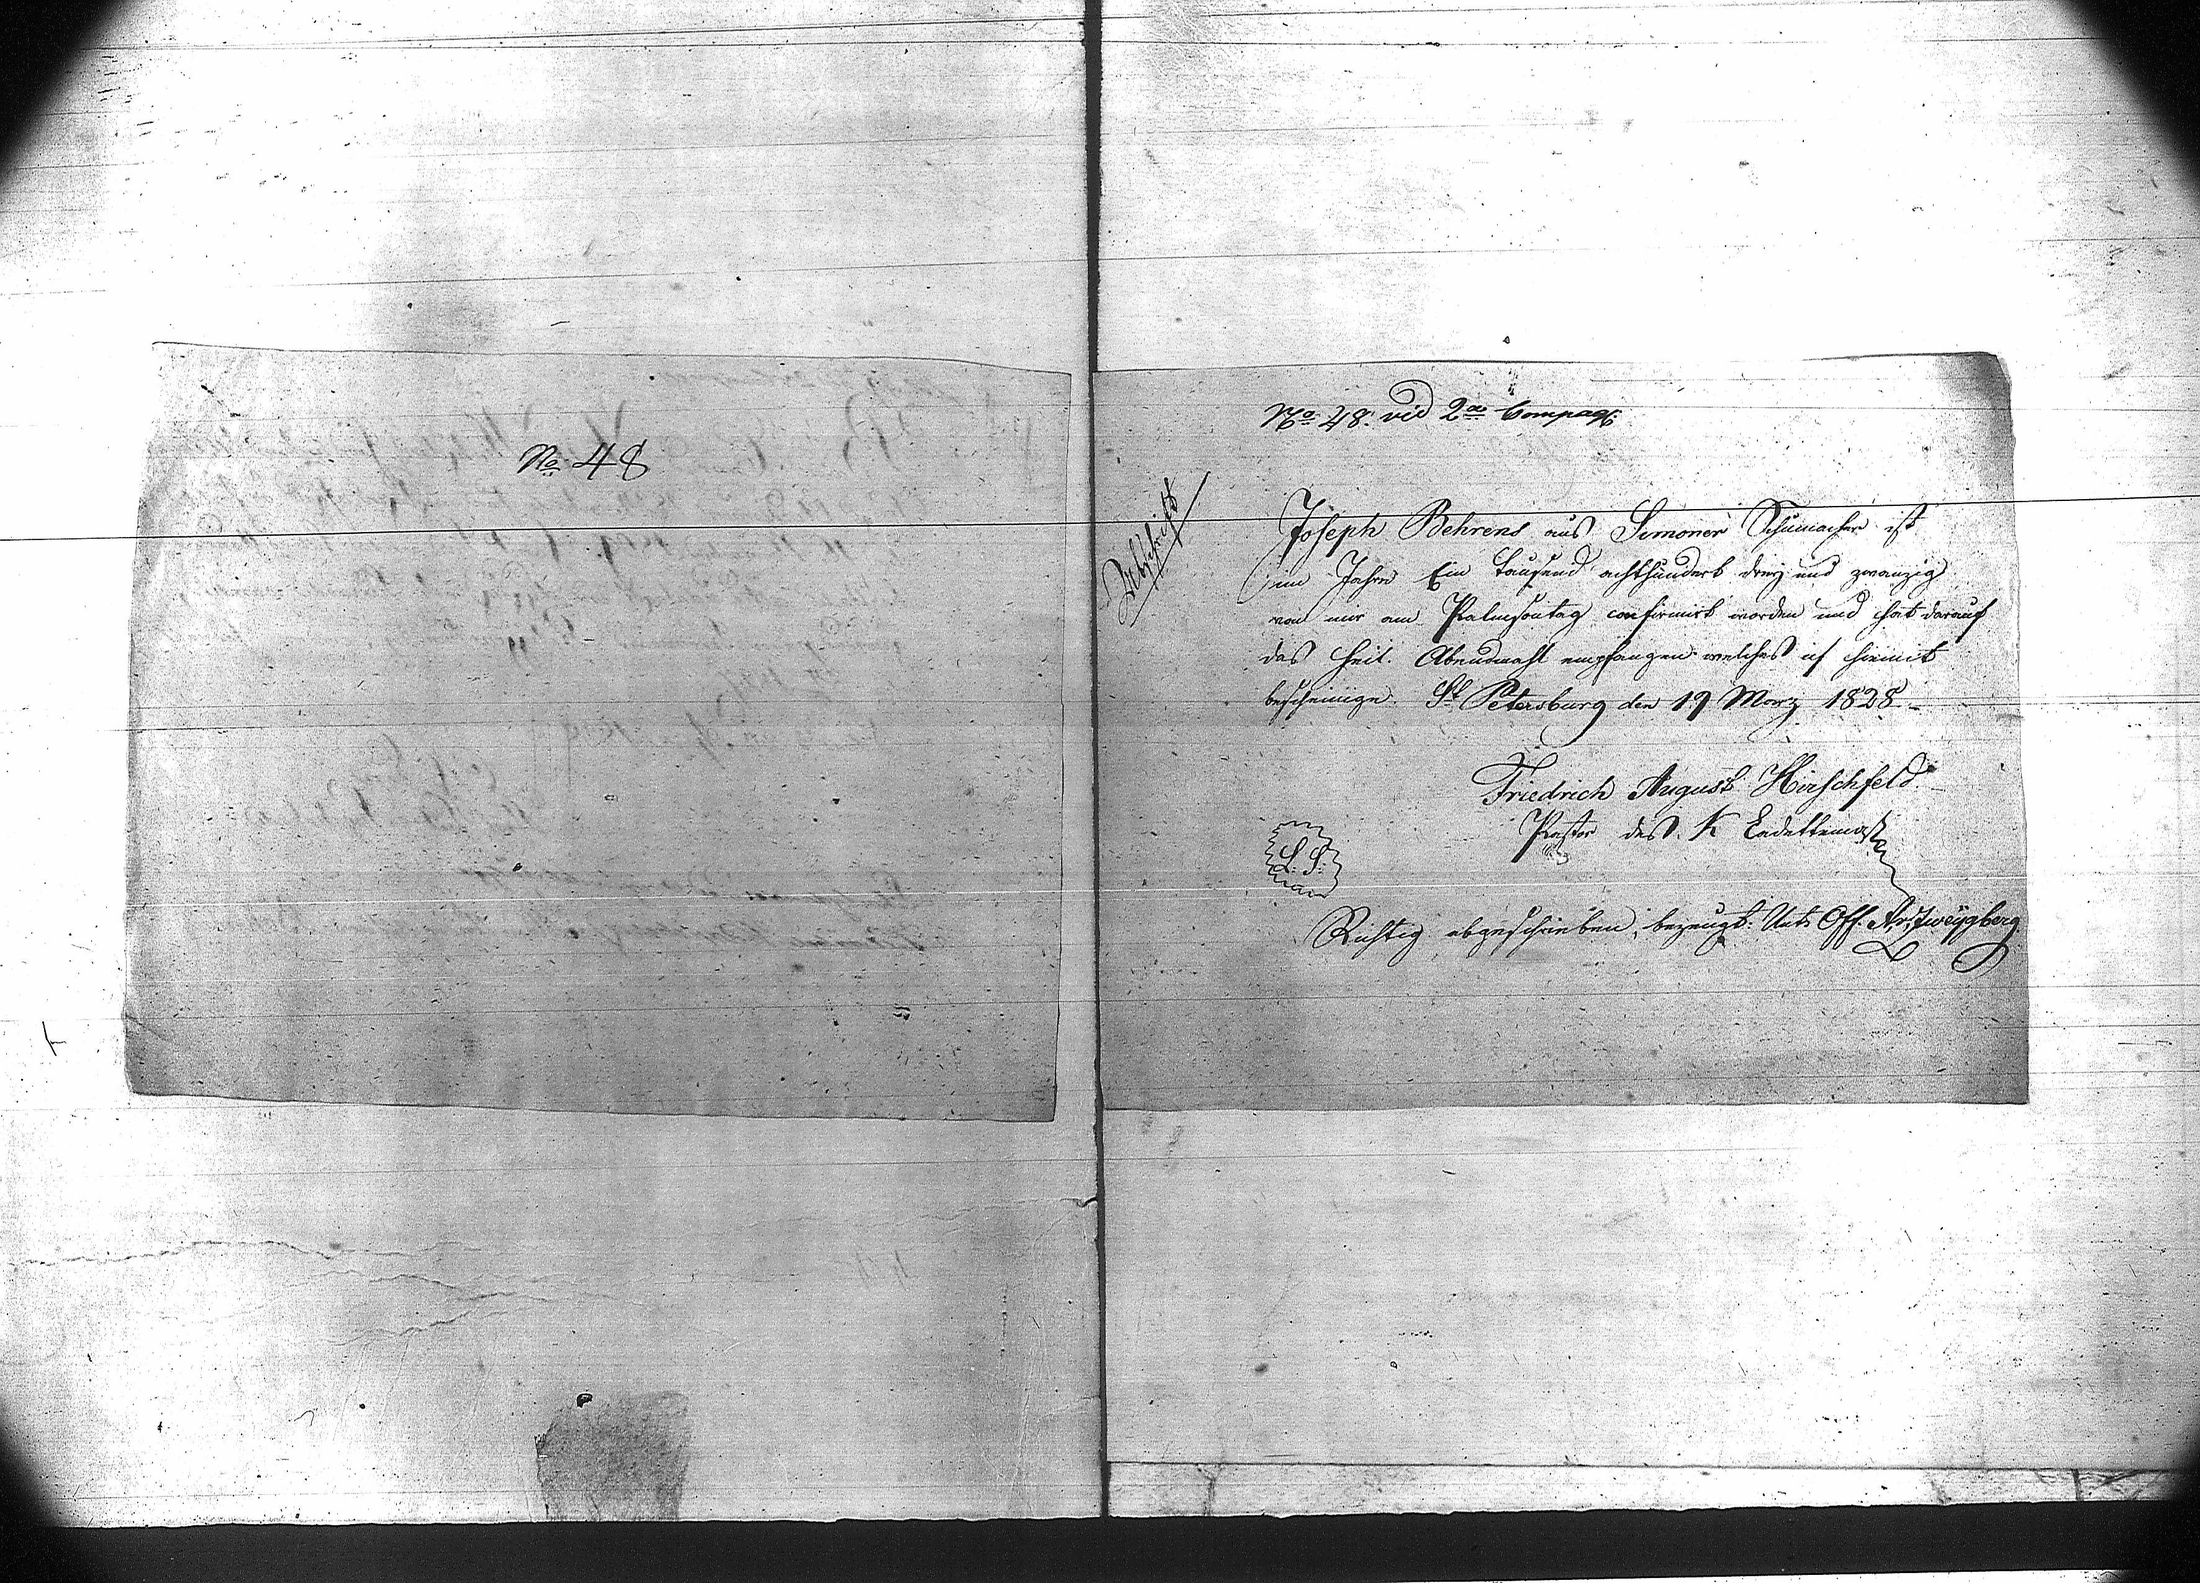 No 48
No 48. vid 2te Compag.
Abschrift
Joseph Behrens aus Simoner Schumacher ist
im Jahre Ein tausend achthundert drey und zwanzig
von mir am Palmsontag confirmirt worden und hat darauf
das heil. Abendmahl empfangen welches ich hiemit
bescheinige. St Petersburg den 19 Merz 1828
Friedrich August Hirschfeld
Pastor des K
L. S.
Richtig abgeschrieben, bezeugt. Unt. Off.